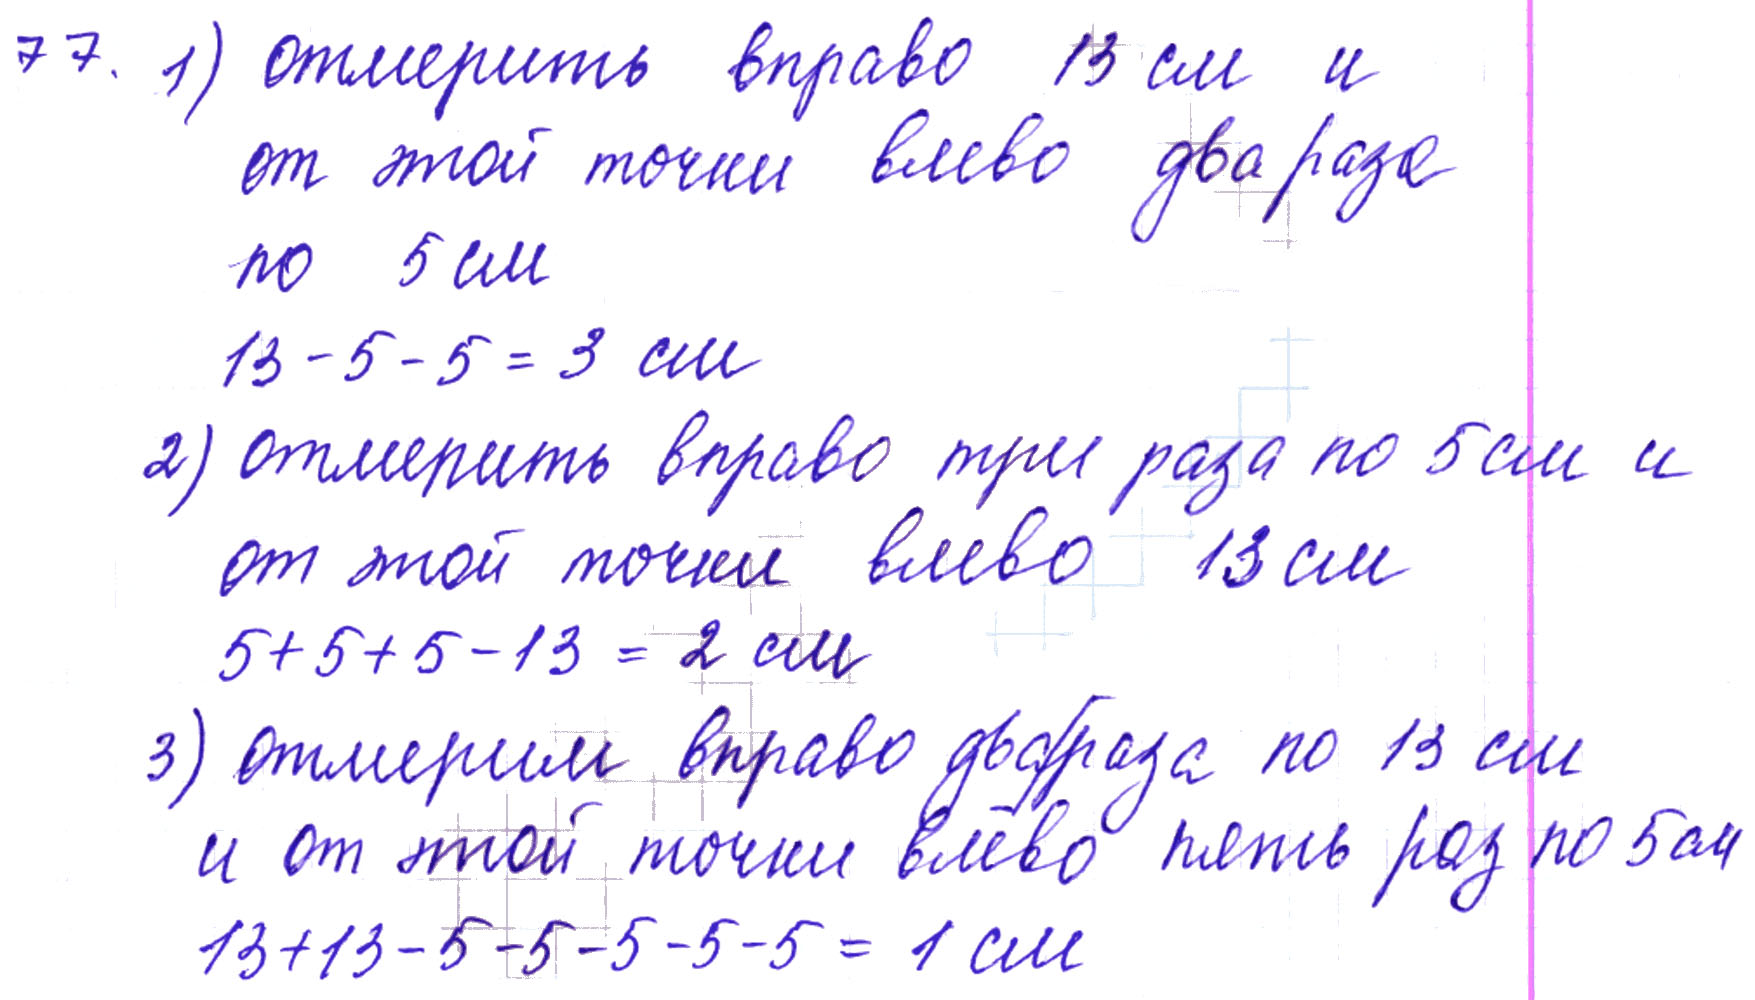 77. 1) отмерить вправо 13 см и
от этой точки влево два раза
по 5 см
13 - 5 - 5 = 3 см
2) отмерить вправо три раза по 5 см и
от этой точки влево 13 см
5 + 5 + 5 - 13 = 2 см
3) отмерим вправо два раза по 13 см
и от этой точки влево пять раз по 5 см
13 + 13 - 5 - 5 - 5 - 5 - 5 = 1 см